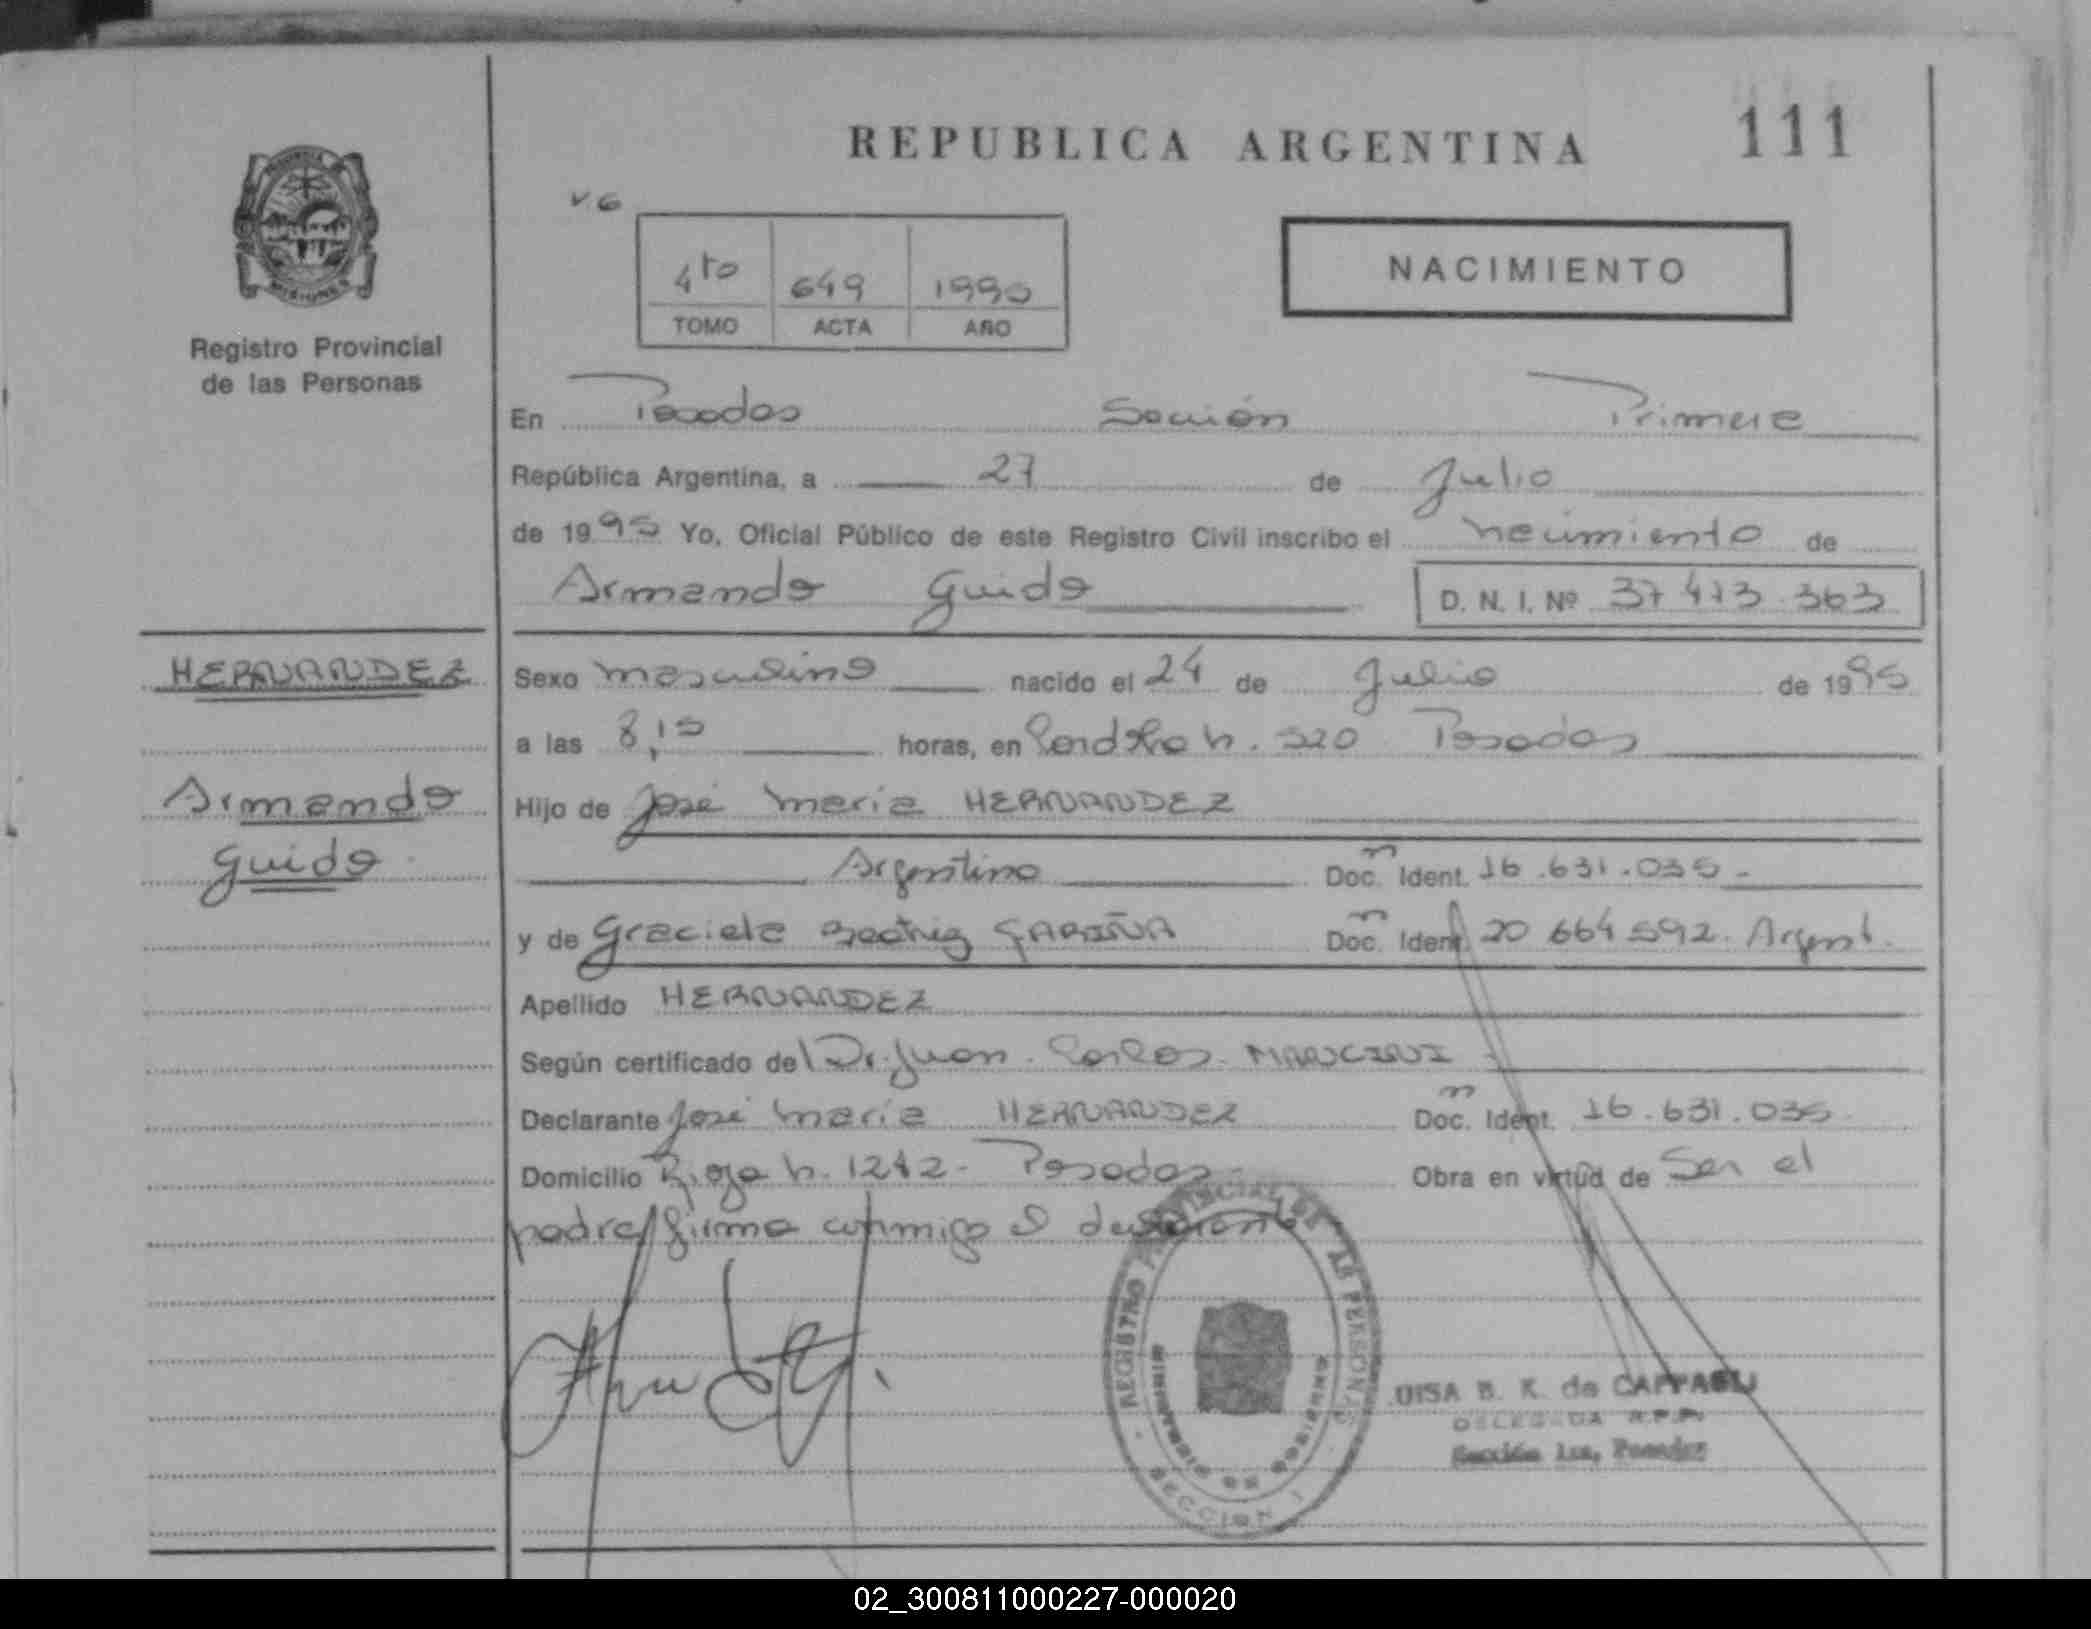 REPUBLICA ARGENTINA 111
v6
4to 649 1990
TOMO ACTA AÑO
NACIMIENTO
PROVINCIA
MISIONES
Registro Provincial
de las Personas
En Posadas Sección Primera
República Argentina, a 27 de Julio
de 1990 Yo, Oficial Público de este Registro Civil inscribo el nacimiento de
Armando Guido D. N. I. Nº 37 473 363
HERNANDEZ
Armando
Guido
Sexo masculino nacido el 24 de Julio de 1990
a las 8,10 horas, en n. 320 Posadas
Hijo de José María HERNANDEZ
Argentino Doc. m Ident. 16.631.035.-
y de Graciela Beatriz GARIÑA Doc. m Ident. 20 664 592. Argent.
Apellido HERNANDEZ
Según certificado del Dr. Juan Carlos MANCINI
Declarante José María HERNANDEZ Doc. m Ident. 16.631.035
Domicilio Rioja n. 1242- Posadas- Obra en virtud de Ser el
padre/firma conmigo el declarante
REGISTRO PROVINCIAL DE LAS PERSONAS
MINISTERIO DE GOBIERNO
SECCION 1
LUISA B. K. de CAPPAELI
DELEGADA R.P.P.
Sección 1ra, Posadas
02_300811000227-000020